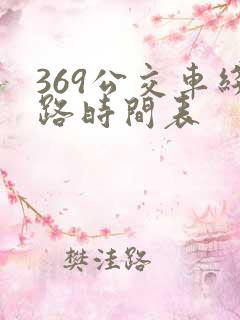 369公交車
路時間表
樊洼路